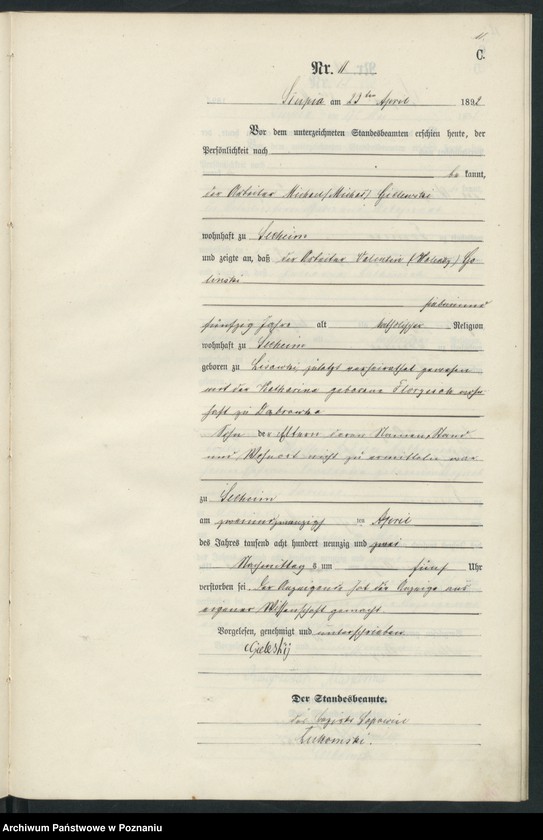 C.
Nr. 11
am 23ten April 1892
Vor dem unterzeichneten Standesbeamten erschien heute, der
Persönlichkeit nach
be kannt,
der Arbeiter Michael (Michał)
wohnhaft zu Seeheim
und zeigte an, daß der Arbeiter Valentin (Walenty) Go-
linski
siebenund
fünfzig Jahre alt katholischer Religion
wohnhaft zu Seeheim
geboren zu zuletzt verheirathet gewesen
mit der Katharina geborene wohn-
haft zu Dabrowka
Sohn der Eltern deren Namen, Stand
und Wohnort nicht zu ermitteln war
zu Seeheim
am zweiundzwanzigsten April
des Jahres tausend acht hundert neunzig und zwei
Nachmittags um fünf Uhr
verstorben sei. Der Anzeigende hat die Anzeige aus
eigener Wissenschaft gemacht
Vorgelesen, genehmigt und unterschrieben
Der Standesbeamte.
Archiwum Państwowe w Poznaniu